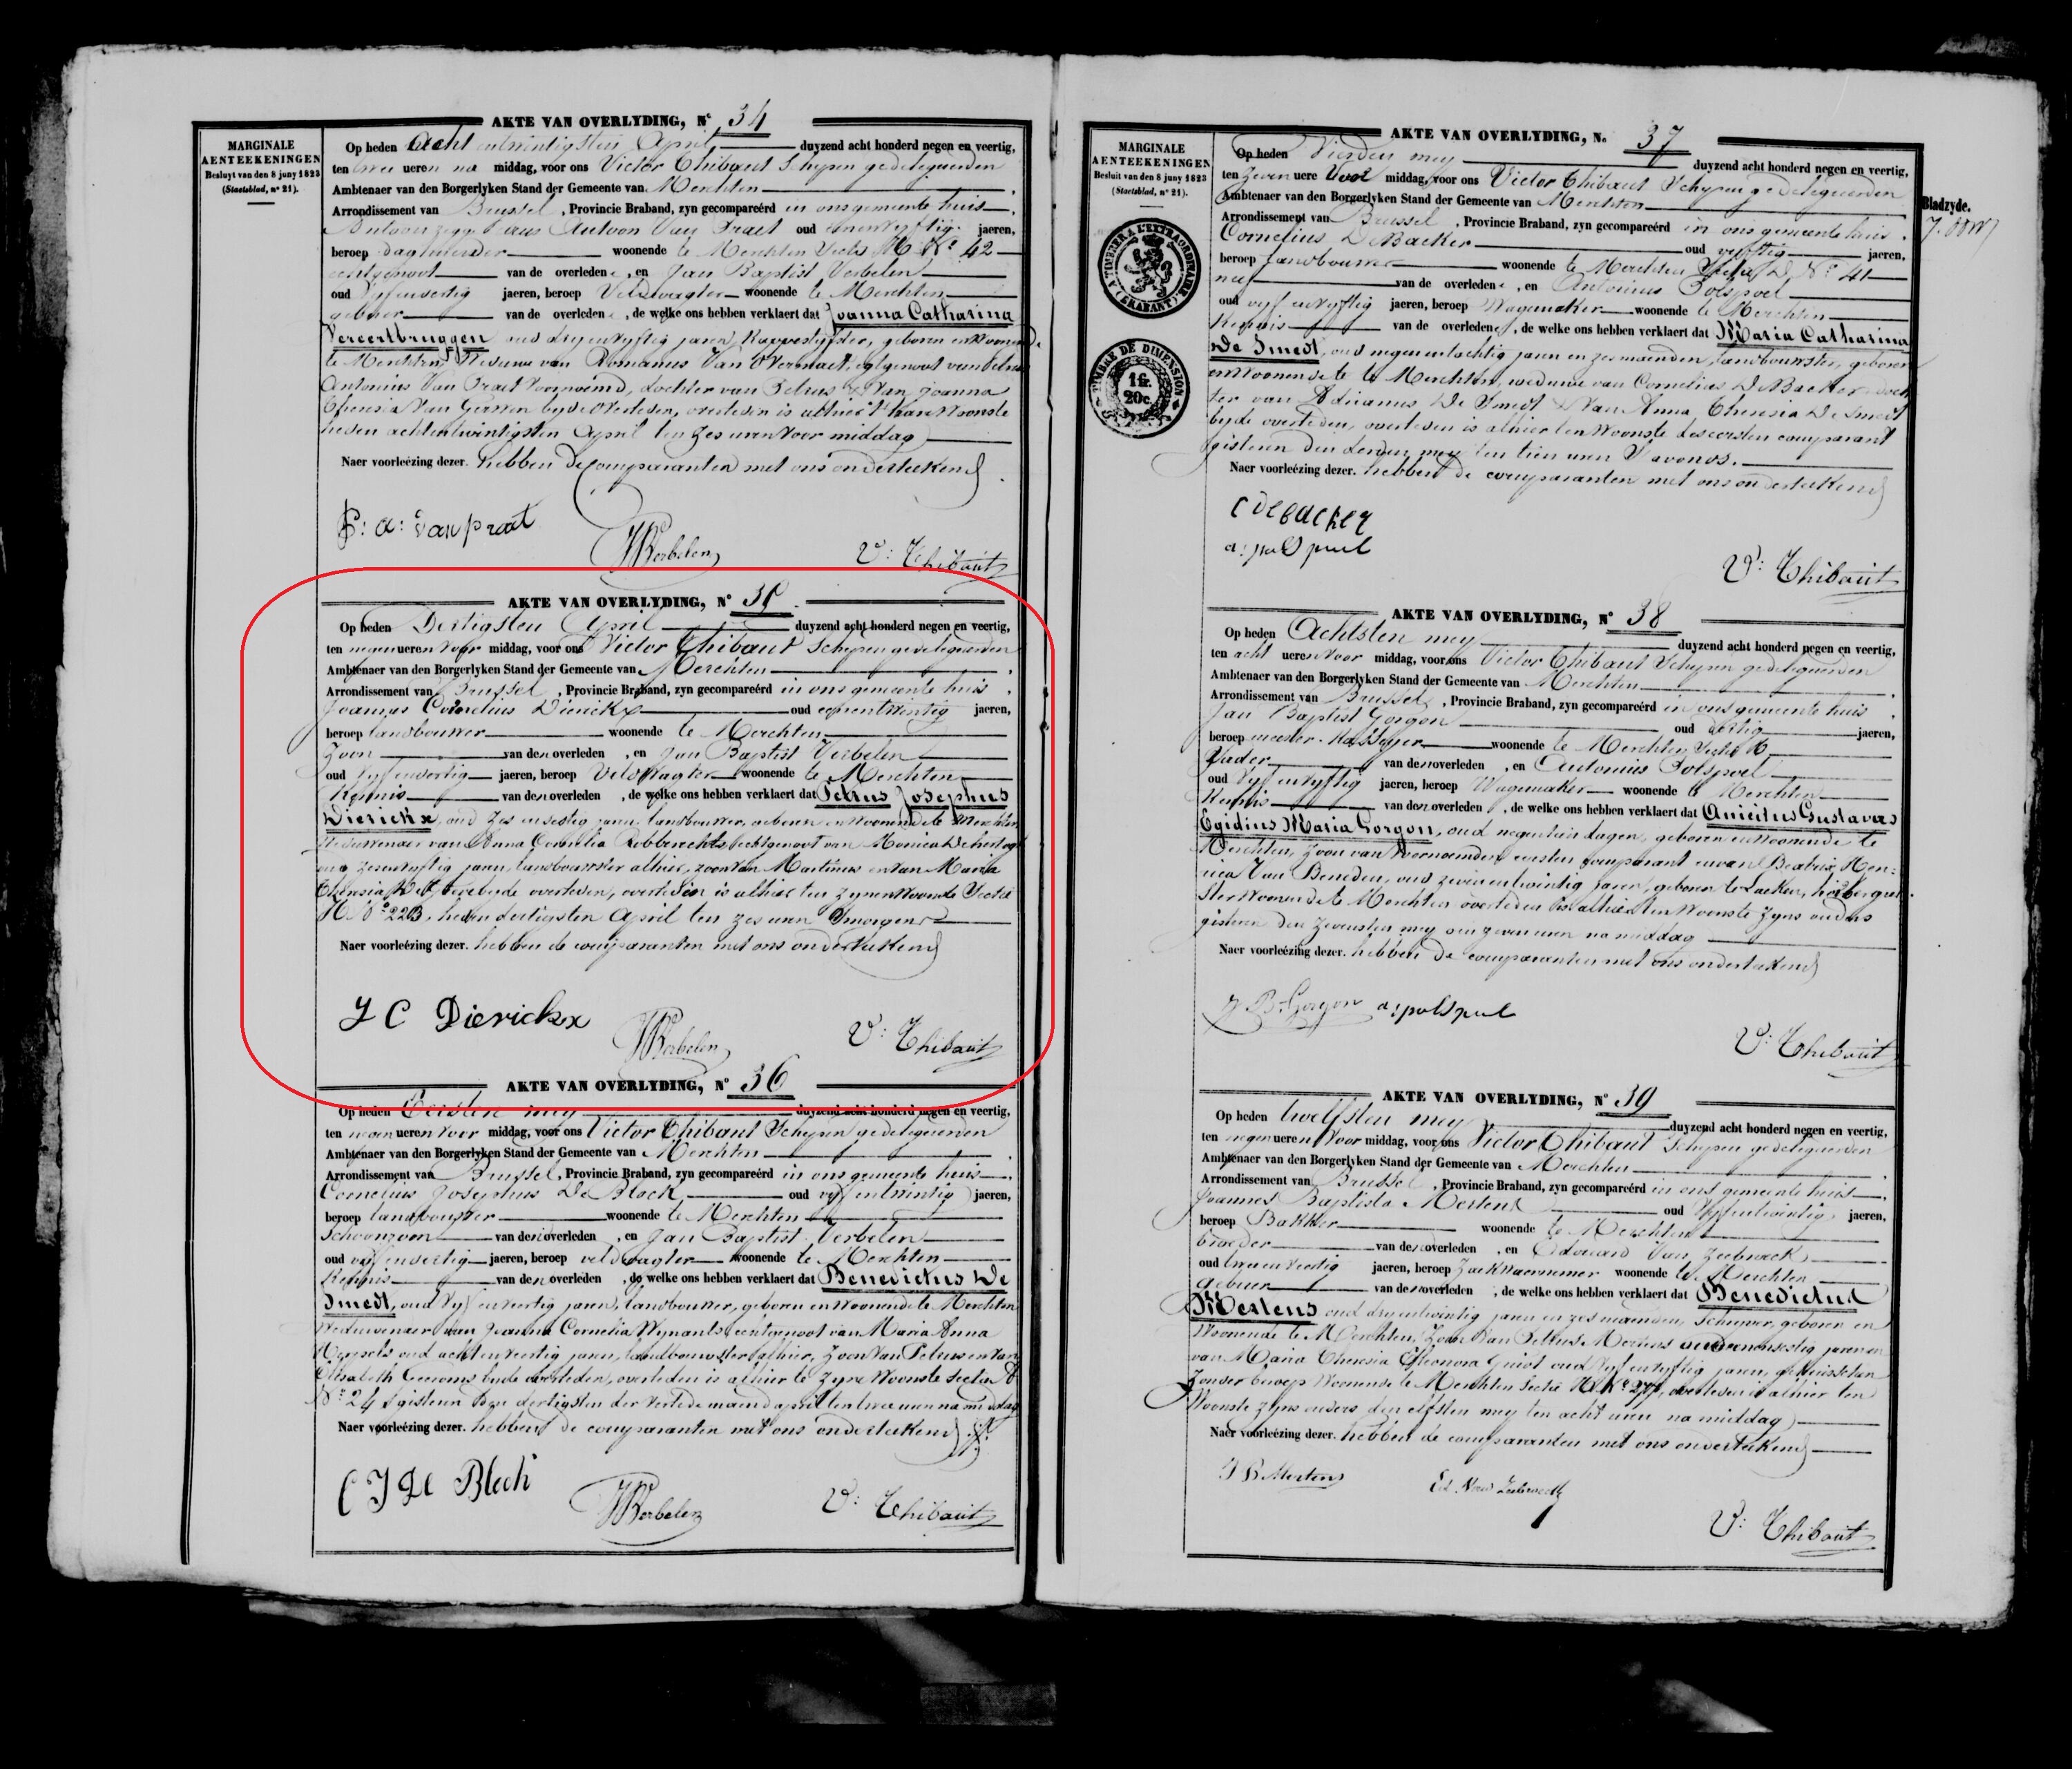 AKTE VAN OVERLYDING, N° 34
MARGINALE
AENTEEKENINGEN
Besluyt van den 8 juny 1823
(Staetsblad, n° 21).
Op heden Acht entwintigsten April duyzend acht honderd negen en veertig,
ten twee ueren na middag, voor ons Victor Thibaut Schepen gedelegueerden
Ambtenaer van den Borgerlyken Stand der Gemeente van Merchten
Arrondissement van Brussel, Provincie Braband, zyn gecompareérd in ons gemeente huis
Antoon Van Praet oud jaeren,
beroep daglooner woonende te Merchten Sectie N° 42
echtgenoot van de overledene, en Jan Baptist Verbelen
oud vyfenveertig jaeren, beroep Veldwagter woonende te Merchten
gebuer van de overledene, de welke ons hebben verklaert dat Joanna Catharina
Vereertbruggen oud dryenvyftig jaren, geboren en Woonende
te Merchten, Weduwe van Romanus Van echtgenoot van Petrus
Antonius Van Praet voornoemd, dochter van Petrus en Van Joanna
Theresia Van beyde overleden, overleden is alhier
heden achtentwintigsten April ten zes uren voor middag
Naer voorleézing dezer. hebben de comparanten met ons onderteekend
P: a: Van praet
JBVerbelen
V: Thibaut
AKTE VAN OVERLYDING, N° 35
Op heden Dertigsten April duyzend acht honderd negen en veertig,
ten negen ueren voor middag, voor ons Victor Thibaut Schepen gedelegueerden
Ambtenaer van den Borgerlyken Stand der Gemeente van Merchten
Arrondissement van Brussel, Provincie Braband, zyn gecompareérd in ons gemeente huis
Joannes Cornelius Dierickx oud eenentwintig jaeren,
beroep landbouwer woonende te Merchten
Zoon van den overleden, en Jan Baptist Verbelen
oud vyfenveertig jaeren, beroep Veldwagter woonende te Merchten
Kennis van den overleden, de welke ons hebben verklaert dat Petrus Josephus
Dierickx, oud zes ensestig jaren, landbouwer, geboren en woonende te Merchten
Weduwenaer van Anna Cornelia Robberechts, echtgenoot van Monica Dehertogh
oud zesenvyftig jaren, landbouwster alhier, zoon van Martinus en van Maria
Theresia beyde overleden, overleden is alhier ten zynen Woonde Sectie
N° 223, heden dertigsten April ten zes uren Smorgens
Naer voorleézing dezer. hebben de comparanten met ons onderteekend
J C Dierickx
JBVerbelen
V: Thibaut
AKTE VAN OVERLYDING, N° 36
Op heden Eersten mey duyzend acht honderd negen en veertig,
ten negen ueren voor middag, voor ons Victor Thibaut Schepen gedelegueerden
Ambtenaer van den Borgerlyken Stand der Gemeente van Merchten
Arrondissement van Brussel, Provincie Braband, zyn gecompareérd in ons gemeente huis
Cornelius Josephus De Block oud vyf entwintig jaeren,
beroep landbouwer woonende te Merchten
Schoonzoon van den overleden, en Jan Baptist Verbelen
oud vyfenveertig jaeren, beroep veldwagter woonende te Merchten
Kennis van den overleden, de welke ons hebben verklaert dat Benedictus De
Smedt, oud vyf enveertig jaren, landbouwer, geboren en woonende te Merchten
Weduwenaer van Joanna Cornelia Wynants, echtgenoot van Maria Anna
oud achtenveertig jaren, landbouwster alhier, Zoon van Petrus en van
Elisabeth beyde overleden, overleden is alhier te zyne Woonste Sectie
N° gisteren den dertigsten der maend april ten twee uren na middag
Naer voorleézing dezer. hebben de comparanten met ons onderteekend
C J De Block
JBVerbelen
V: Thibaut
AKTE VAN OVERLYDING, N. 37
MARGINALE
AENTEEKENINGEN
Besluit van den 8 juny 1823
(Staetsblad, n° 21).
TIMBRE A L'EXTRAORDINAIRE
(BRABANT)
TIMBRE DE DIMENSION
1 fr.
20 c.
Bladzyde.
Op heden Vierden mey duyzend acht honderd negen en veertig,
ten zeven uere Voor middag, voor ons Victor Thibaut Schepen gedelegueerden
Ambtenaer van den Borgerlyken Stand der Gemeente van Merchten
Arrondissement van Brussel, Provincie Braband, zyn gecompareérd in ons gemeente huis
Cornelius De Backer oud vyftig jaeren,
beroep landbouwer woonende te Merchten Sectie D N° 41
neef van de overledene, en Antonius Polspoel
oud vyf envyftig jaeren, beroep Wagemaker woonende te Merchten
Kennis van de overledene, de welke ons hebben verklaert dat Maria Catharina
De Smedt, oud negenentachtig jaren en zes maenden, landbouwster, geboren
en Woonende te Merchten, weduwe van Cornelius De Backer doch
ter van Adrianus De Smedt en Van Anna Theresia De Smedt
beyde overleden, overleden is alhier ten Woonste des eersten comparant
gisteren den derden mey ten tien uren Savonds.
Naer voorleézing dezer. hebben de comparanten met ons onderteekend
C debacker
a: polspoel
V: Thibaut
AKTE VAN OVERLYDING, N° 38
Op heden Achtsten mey duyzend acht honderd negen en veertig,
ten acht ueren voor middag, voor ons Victor Thibaut Schepen gedelegueerden
Ambtenaer van den Borgerlyken Stand der Gemeente van Merchten
Arrondissement van Brussel, Provincie Braband, zyn gecompareérd in ons gemeente huis
Jan Baptist Gorgon oud dertig jaeren,
beroep meester woonende te Merchten Sectie
Vader van den overleden, en Antonius Polspoel
oud vyf envyftig jaeren, beroep Wagemaker woonende te Merchten
Kennis van den overleden, de welke ons hebben verklaert dat Anicitus Gustavus
Egidius Maria Gorgon, oud negentien dagen, geboren en woonende te
Merchten, zoon van Voornoemden eersten comparant en van Beatrix Mon-
nica Van Beneden, oud zevenentwintig jaren, geboren te Laeken, herbergier-
ster Woonende te Merchten overleden is alhier ten Woonste zyns ouders
gisteren den zevensten mey om zeven uren na middag
Naer voorleézing dezer. hebben de comparanten met ons onderteekend
J B Gorgon a: polspoel
V: Thibaut
AKTE VAN OVERLYDING, N° 39
Op heden twelfsten mey duyzend acht honderd negen en veertig,
ten negen ueren Voor middag, voor ons Victor Thibaut Schepen gedelegueerden
Ambtenaer van den Borgerlyken Stand der Gemeente van Merchten
Arrondissement van Brussel, Provincie Braband, zyn gecompareérd in ons gemeente huis
Joannes Baptista Mertens oud vyfentwintig jaeren,
beroep Bakker woonende te Merchten
broeder van den overleden, en Edouard Van Zeebroeck
oud tweenveertig jaeren, beroep Zaekwaernemer woonende te Merchten
gebuer van den overleden, de welke ons hebben verklaert dat Benedictus
Mertens oud dryentwintig jaren en zes maenden, Schrynwer, geboren en
Woonende te Merchten, Zoon Van Petrus Mertens oud jaren en
van Maria Theresia Eleonora oud vyf envyftig jaren,
zonder beroep Woonende te Merchten Sectie N° 277, overleden is alhier ten
Woonste zyns ouders den elfsten mey ten acht uren na middag
Naer voorleézing dezer. hebben de comparanten met ons onderteekend
J B Mertens
Ed. Van Zeebroeck
V: Thibaut